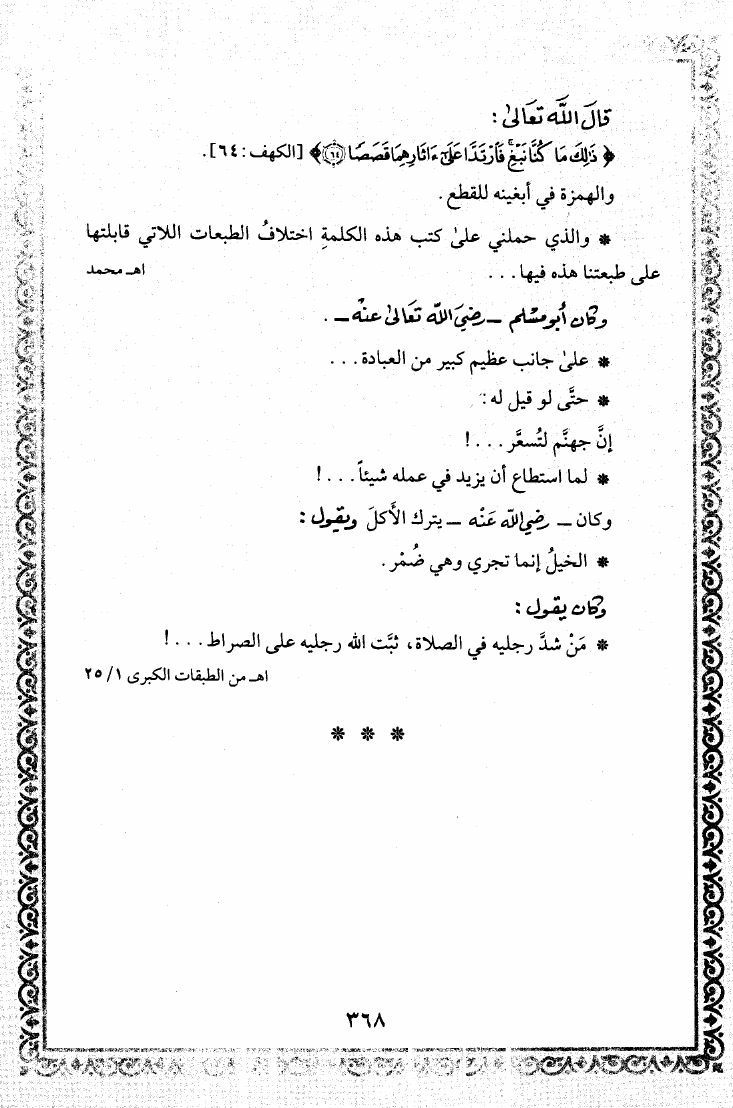 قَالَ اللَّه تَعَالىٰ :
﴿ ذَٰلِكَ مَا كُنَّا نَبْغِ ۚ فَٱرْتَدَّا عَلَىٰٓ ءَاثَارِهِمَا قَصَصًا ﴿٦٤﴾ ﴾ [الكهف: ٦٤].
والهمزة في أبغينه للقطع.
* والذي حملني علىٰ كتب هذه الكلمةِ اختلافُ الطبعات اللاتي قابلتها
على طبعتنا هذه فيها . . . اهـ محمد
وكان أبو مسْلم ــ رضيَ اللّه تعَالىٰ عنْه ــ .
* علىٰ جانب عظيم كبير من العبادة . . .
* حتَّى لو قيل له :
إنَّ جهنَّم لتُسعَّر . . . !
* لما استطاع أن يزيد في عمله شيئاً . . . !
وكان ــ رضي اللّه عَنْه ــ يترك الأَكلَ ويقول :
* الخيلُ إنما تجري وهي ضُمْر .
وكان يقول :
* مَنْ شدَّ رجليه في الصلاة، ثبَّت الله رجليه على الصراط . . . !
اهـ من الطبقات الكبرى ١/ ٢٥
* * *
٣٦٨